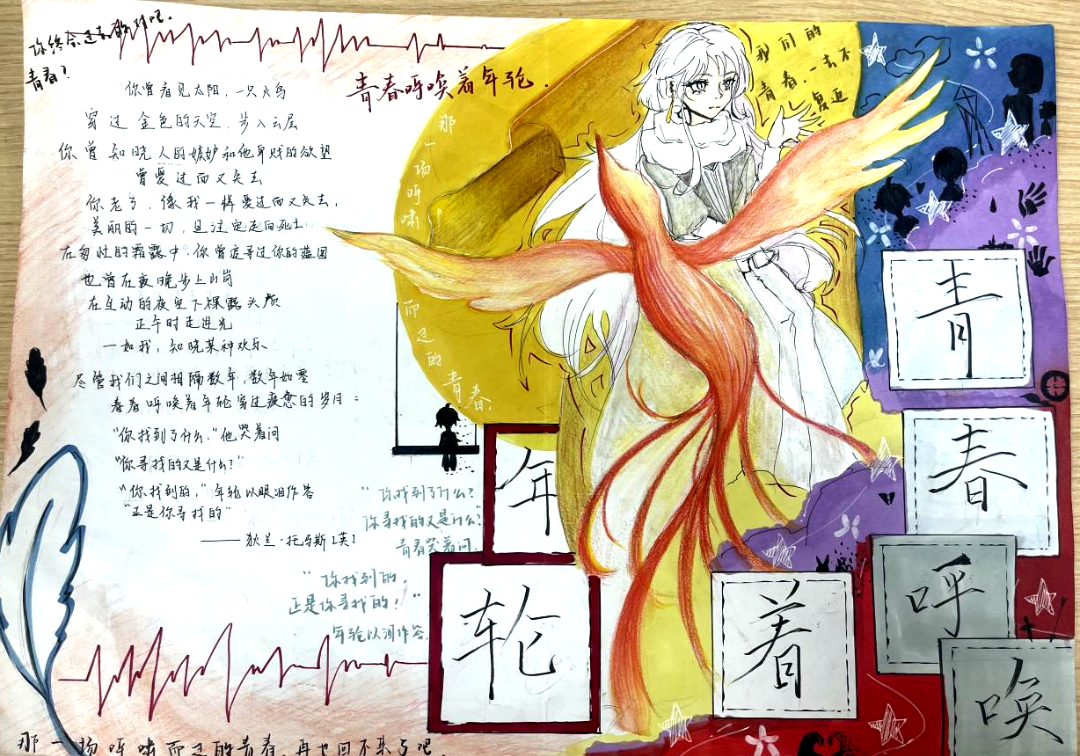 你终会遇到的对吧.
青春?
青春呼唤着年轮.
我们的
青春,一去不
复返
你曾看见太阳,一只火鸟
穿过金色的天空,步入云层
你曾知晓人的嫉妒和他卑贱的欲望
曾爱过而又失去
你老了,像我一样爱过而又失去,
美丽的一切,
在匆忙的霜露中,你曾追寻过你的
也曾在夜晚步上山岗
在生动的夜空下裸露头颅
正午时走进光
一如我,知晓某种欢乐
尽管我们之间相隔数年,数年如零
青春呼唤着年轮穿过疲惫的岁月:
“你找到了什么,”他哭着问
“你寻找的又是什么?”
“你找到的,”年轮以眼泪作答
“正是你寻找的”
——狄兰·托马斯[英]
那一场呼啸
而过的青春
“你找到了什么?
你寻找的又是什么?”
青春哭着问.
“你找到的,
正是你寻找的!”
年轮以泪作答.
青
春
呼
唤
着
年
轮
那一场呼啸而过的青春,再也回不来了吧.